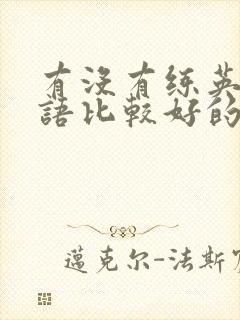 有没有练英
語比較好的
邁克尔-法斯宾